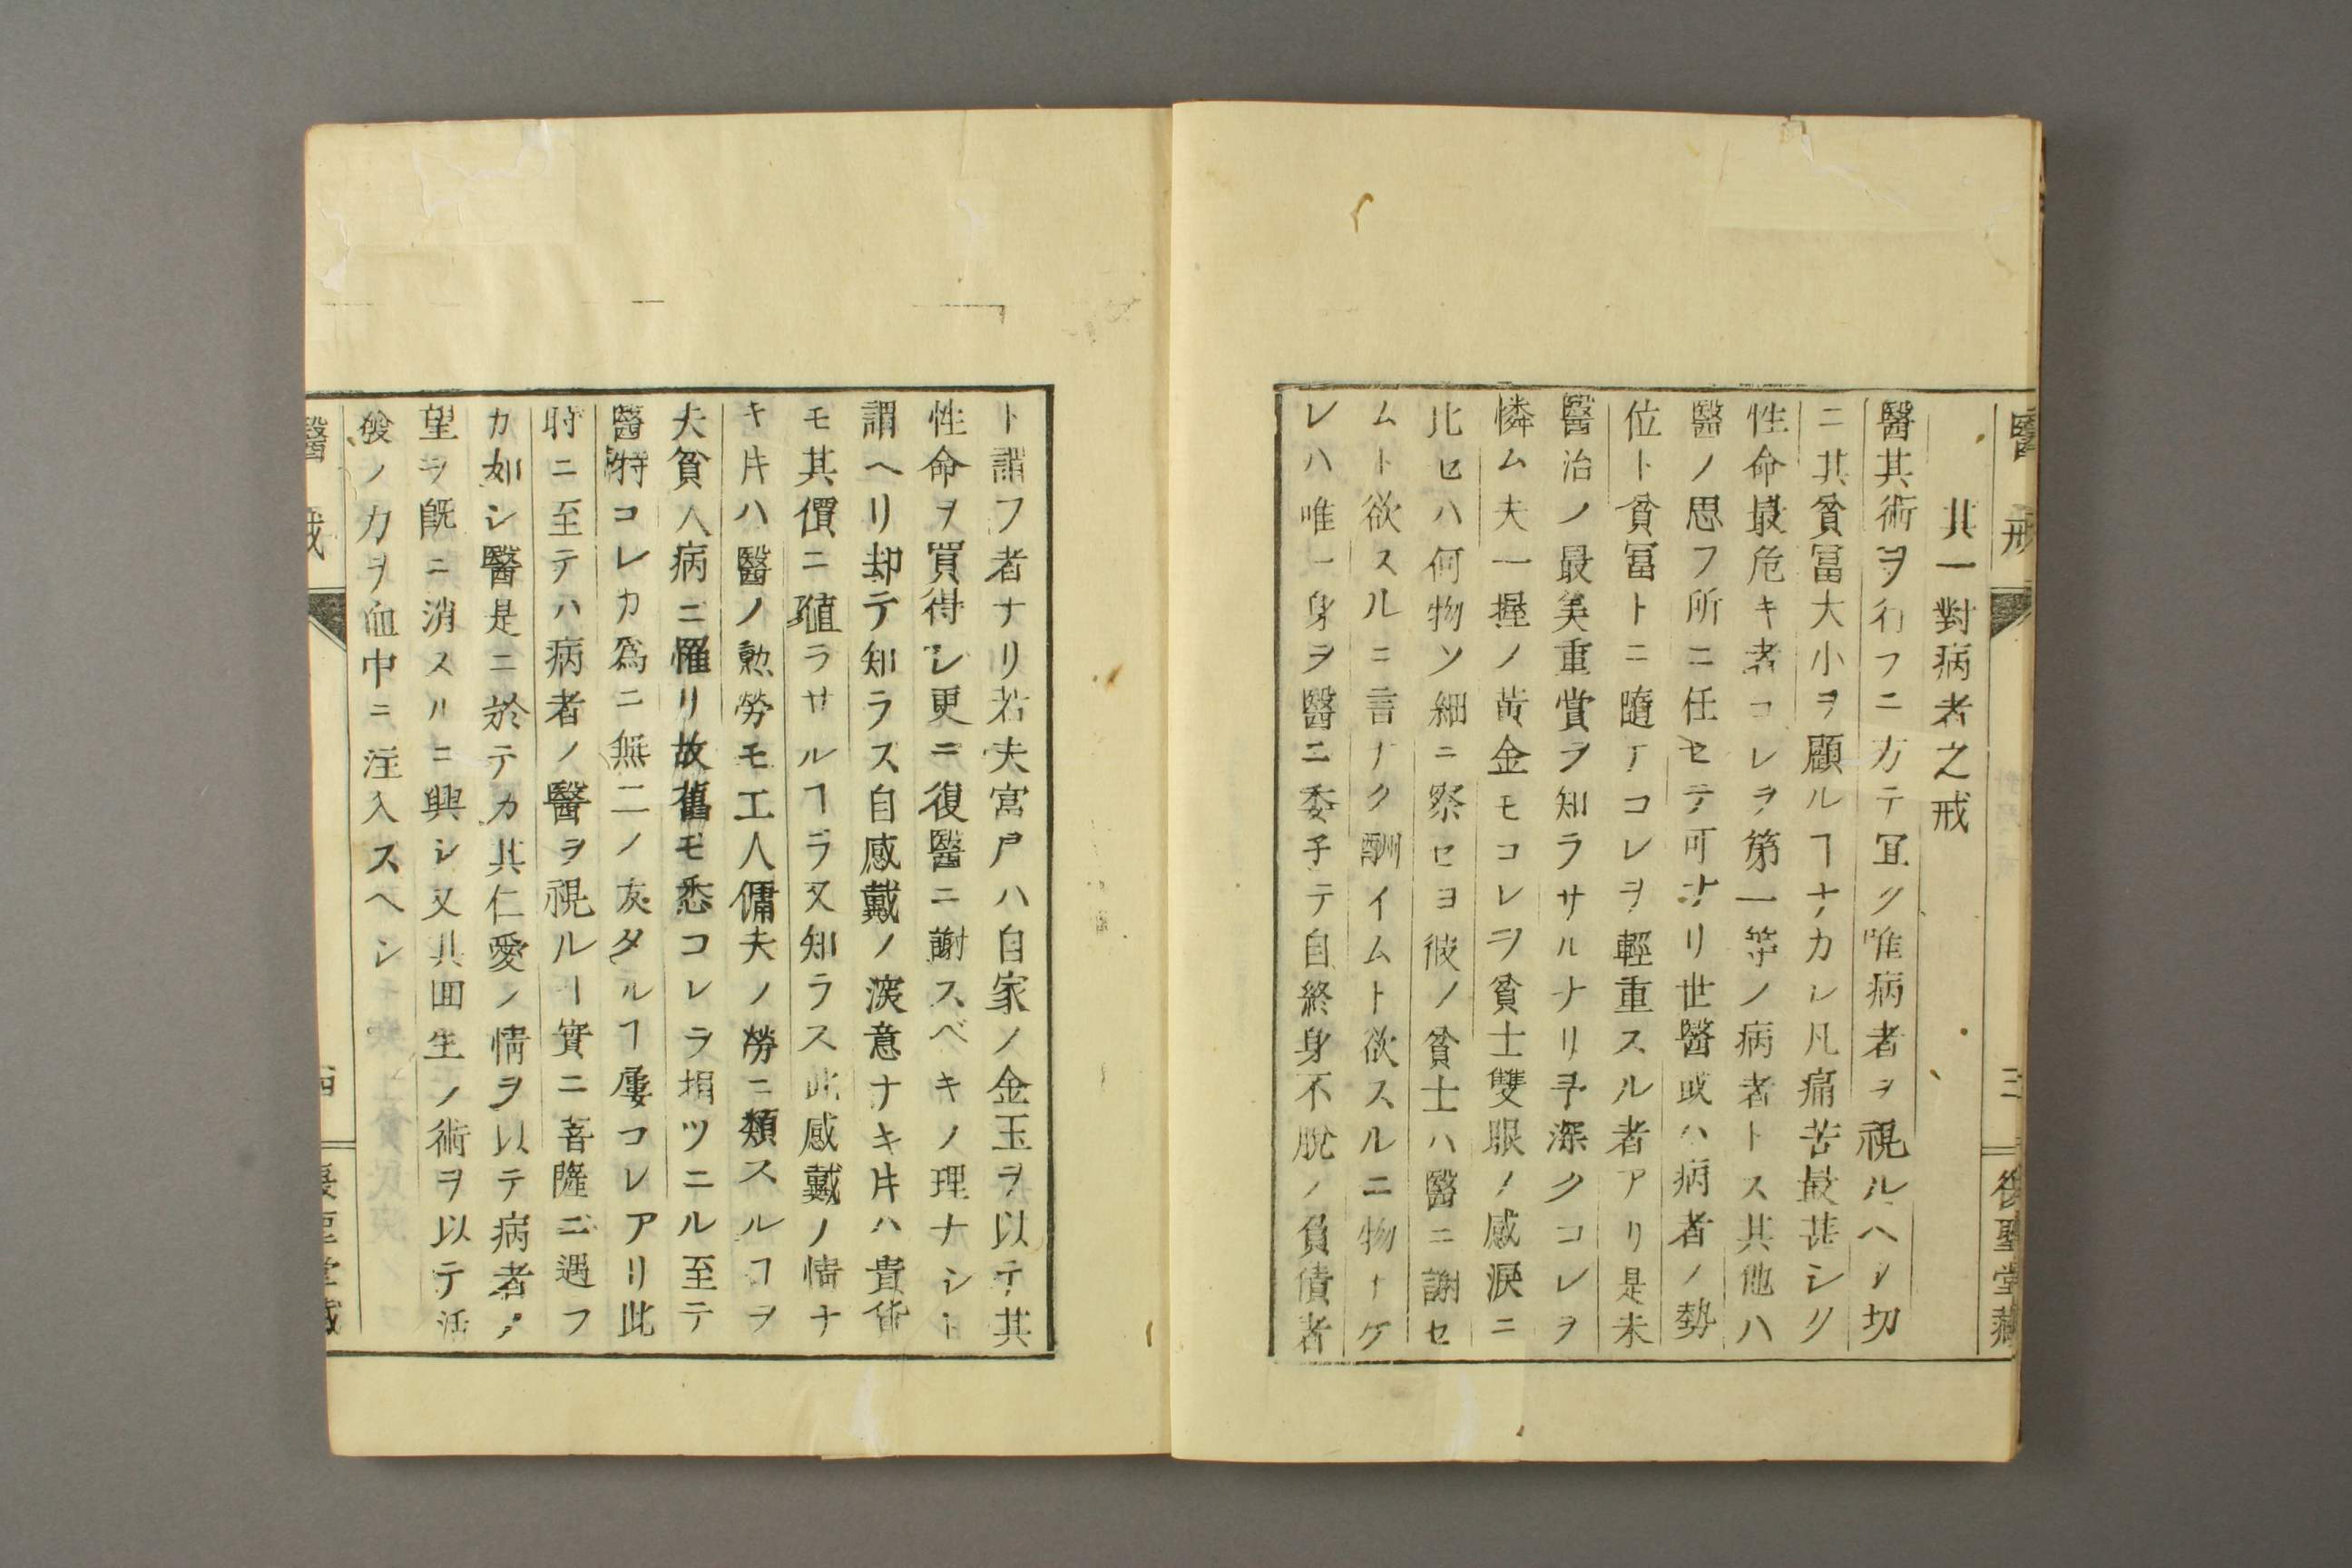 醫戒
三
後聖堂藏
其一對病者之戒
醫其術ヲ行フニ方テ宜ク唯病者ヲ視ルヘシ切
ニ其貧冨大小ヲ顧ルヿナカレ凡痛苦最甚シク
性命最危キ者コレヲ第一等ノ病者トス其他ハ
醫ノ思フ所ニ任セテ可ナリ世醫或ハ病者ノ勢
位ト貧冨トニ隨テコレヲ輕重スル者アリ是未
醫治ノ最美重賞ヲ知ラサルナリ予深クコレヲ
憐ム夫一握ノ黄金モコレヲ貧士雙眼ノ感淚ニ
比セハ何物ソ細ニ察セヨ彼ノ貧士ハ醫ニ謝セ
ムト欲スルニ言ナク酬イムト欲スルニ物ナケ
レハ唯一身ヲ醫ニ委子テ自終身不脫ノ負債者
ト謂フ者ナリ若夫富戸ハ自家ノ金玉ヲ以テ其
性命ヲ買得シ更ニ復醫ニ謝スベキノ理ナシト
謂ヘリ却テ知ラス自感戴ノ深意ナキ片ハ貴貨
モ其價ニ殖ラサルヿヲ又知ラス此感戴ノ情ナ
キ片ハ醫ノ勲勞モ工人傭夫ノ勞ニ類スルヿヲ
夫貧人病ニ罹リ故舊モ悉コレヲ捐ツニル至テ
醫特コレカ爲ニ無二ノ友タルヿ屢コレアリ此
時ニ至テハ病者ノ醫ヲ視ルヿ實ニ喜隆ニ遇フ
カ如シ醫是ニ於テカ其仁愛ノ情ヲ以テ病者ノ
望ヲ既ニ消スルニ興シ又其回生ノ術ヲ以テ活
潑ノ力ヲ血中ニ注入スヘシ
醫戒
四
後聖堂藏